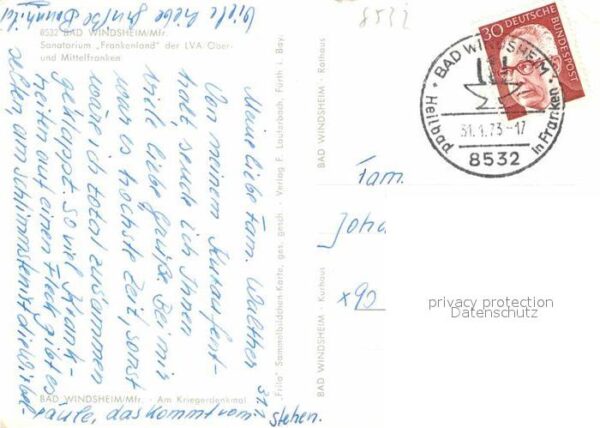 8532 BAD WINDSHEIM/Mfr.
Sanatorium „Frankenland" der LVA Ober-
und Mittelfranken
BAD WINDSHEIM/Mfr. · Am Kriegerdenkmal
„Frila" Sammelbildchen-Karte, ges. gesch. · Verlag F. Lauterbach, Fürth i. Bay.
BAD WINDSHEIM · Kurhaus
BAD WINDSHEIM · Rathaus
Meine liebe Fam. Walther
Von meinem Kuraufent-
halt, sende ich Ihnen
viele liebe Grüße. Bei mir
war es höchste Zeit, sonst
wäre ich total zusammen
geklappt. so viel Krank-
heiten auf einen Fleck gibt es
selten, am schlimmsten ist die Wirbel-
säule, das kommt vom stehen.
Viele liebe Grüße
8532
30 DEUTSCHE BUNDESPOST
BAD WINDSHEIM
31.1.73-17
8532
Heilbad in Franken
Fam.
Joha
privacy protection
Datenschutz